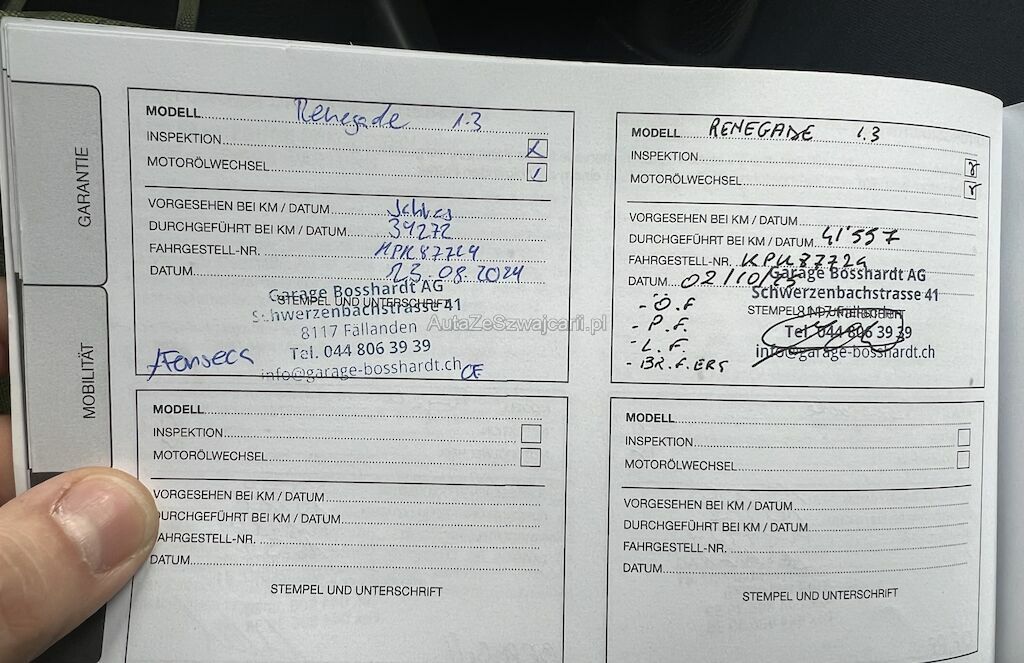 GARANTIE
MOBILITÄT
MODELL Renegade 1.3
INSPEKTION X
MOTORÖLWECHSEL
VORGESEHEN BEI KM / DATUM
DURCHGEFÜHRT BEI KM / DATUM 39272
FAHRGESTELL-NR. KPK87729
DATUM 23.08.2024
STEMPEL UND UNTERSCHRIFT
Garage Bosshardt AG
Schwerzenbachstrasse 41
8117 Fällanden
Tel. 044 806 39 39
info@garage-bosshardt.ch
Fonseca CF
MODELL RENEGADE 1.3
INSPEKTION
MOTORÖLWECHSEL
VORGESEHEN BEI KM / DATUM
DURCHGEFÜHRT BEI KM / DATUM 41'557
FAHRGESTELL-NR. KPK87729
DATUM 02/10/25
- Ö.F
- P.F.
- L.F.
- BR.F.ERS
STEMPEL UND UNTERSCHRIFT
Garage Bosshardt AG
Schwerzenbachstrasse 41
8117 Fällanden
Tel. 044 806 39 39
info@garage-bosshardt.ch
AutaZeSzwajcarii.pl
MODELL
INSPEKTION
MOTORÖLWECHSEL
VORGESEHEN BEI KM / DATUM
DURCHGEFÜHRT BEI KM / DATUM
FAHRGESTELL-NR.
DATUM
STEMPEL UND UNTERSCHRIFT
MODELL
INSPEKTION
MOTORÖLWECHSEL
VORGESEHEN BEI KM / DATUM
DURCHGEFÜHRT BEI KM / DATUM
FAHRGESTELL-NR.
DATUM
STEMPEL UND UNTERSCHRIFT